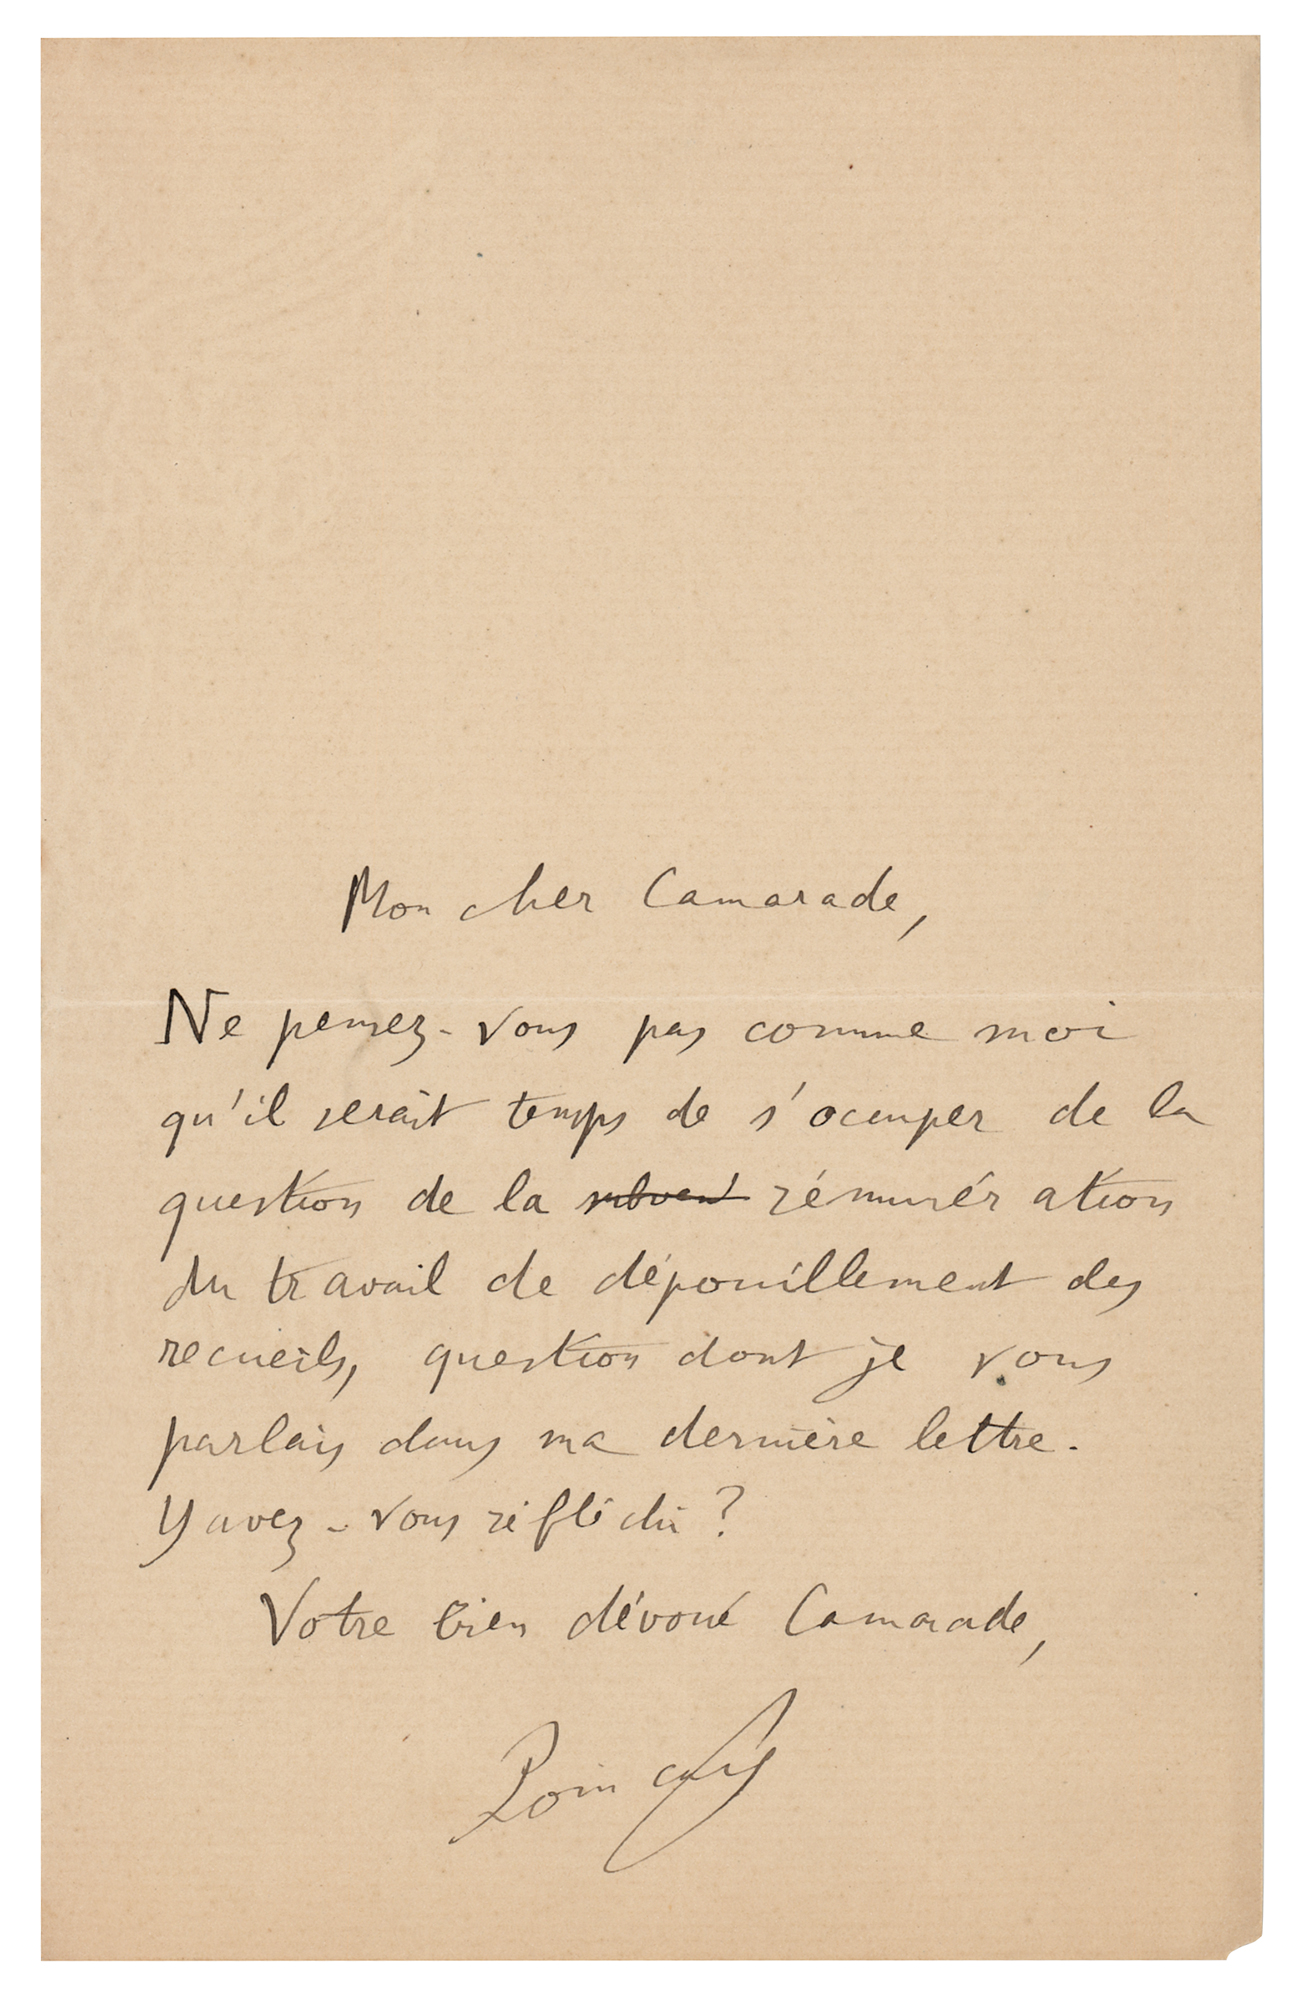 Mon cher Camarade,
Ne pensez-vous pas comme moi
qu'il serait temps de s'occuper de la
question de la rémunération
du travail de dépouillement des
recueils, question dont je vous
parlais dans ma dernière lettre.
Y avez-vous réfléchi ?
Votre bien dévoué Camarade,
Poincaré